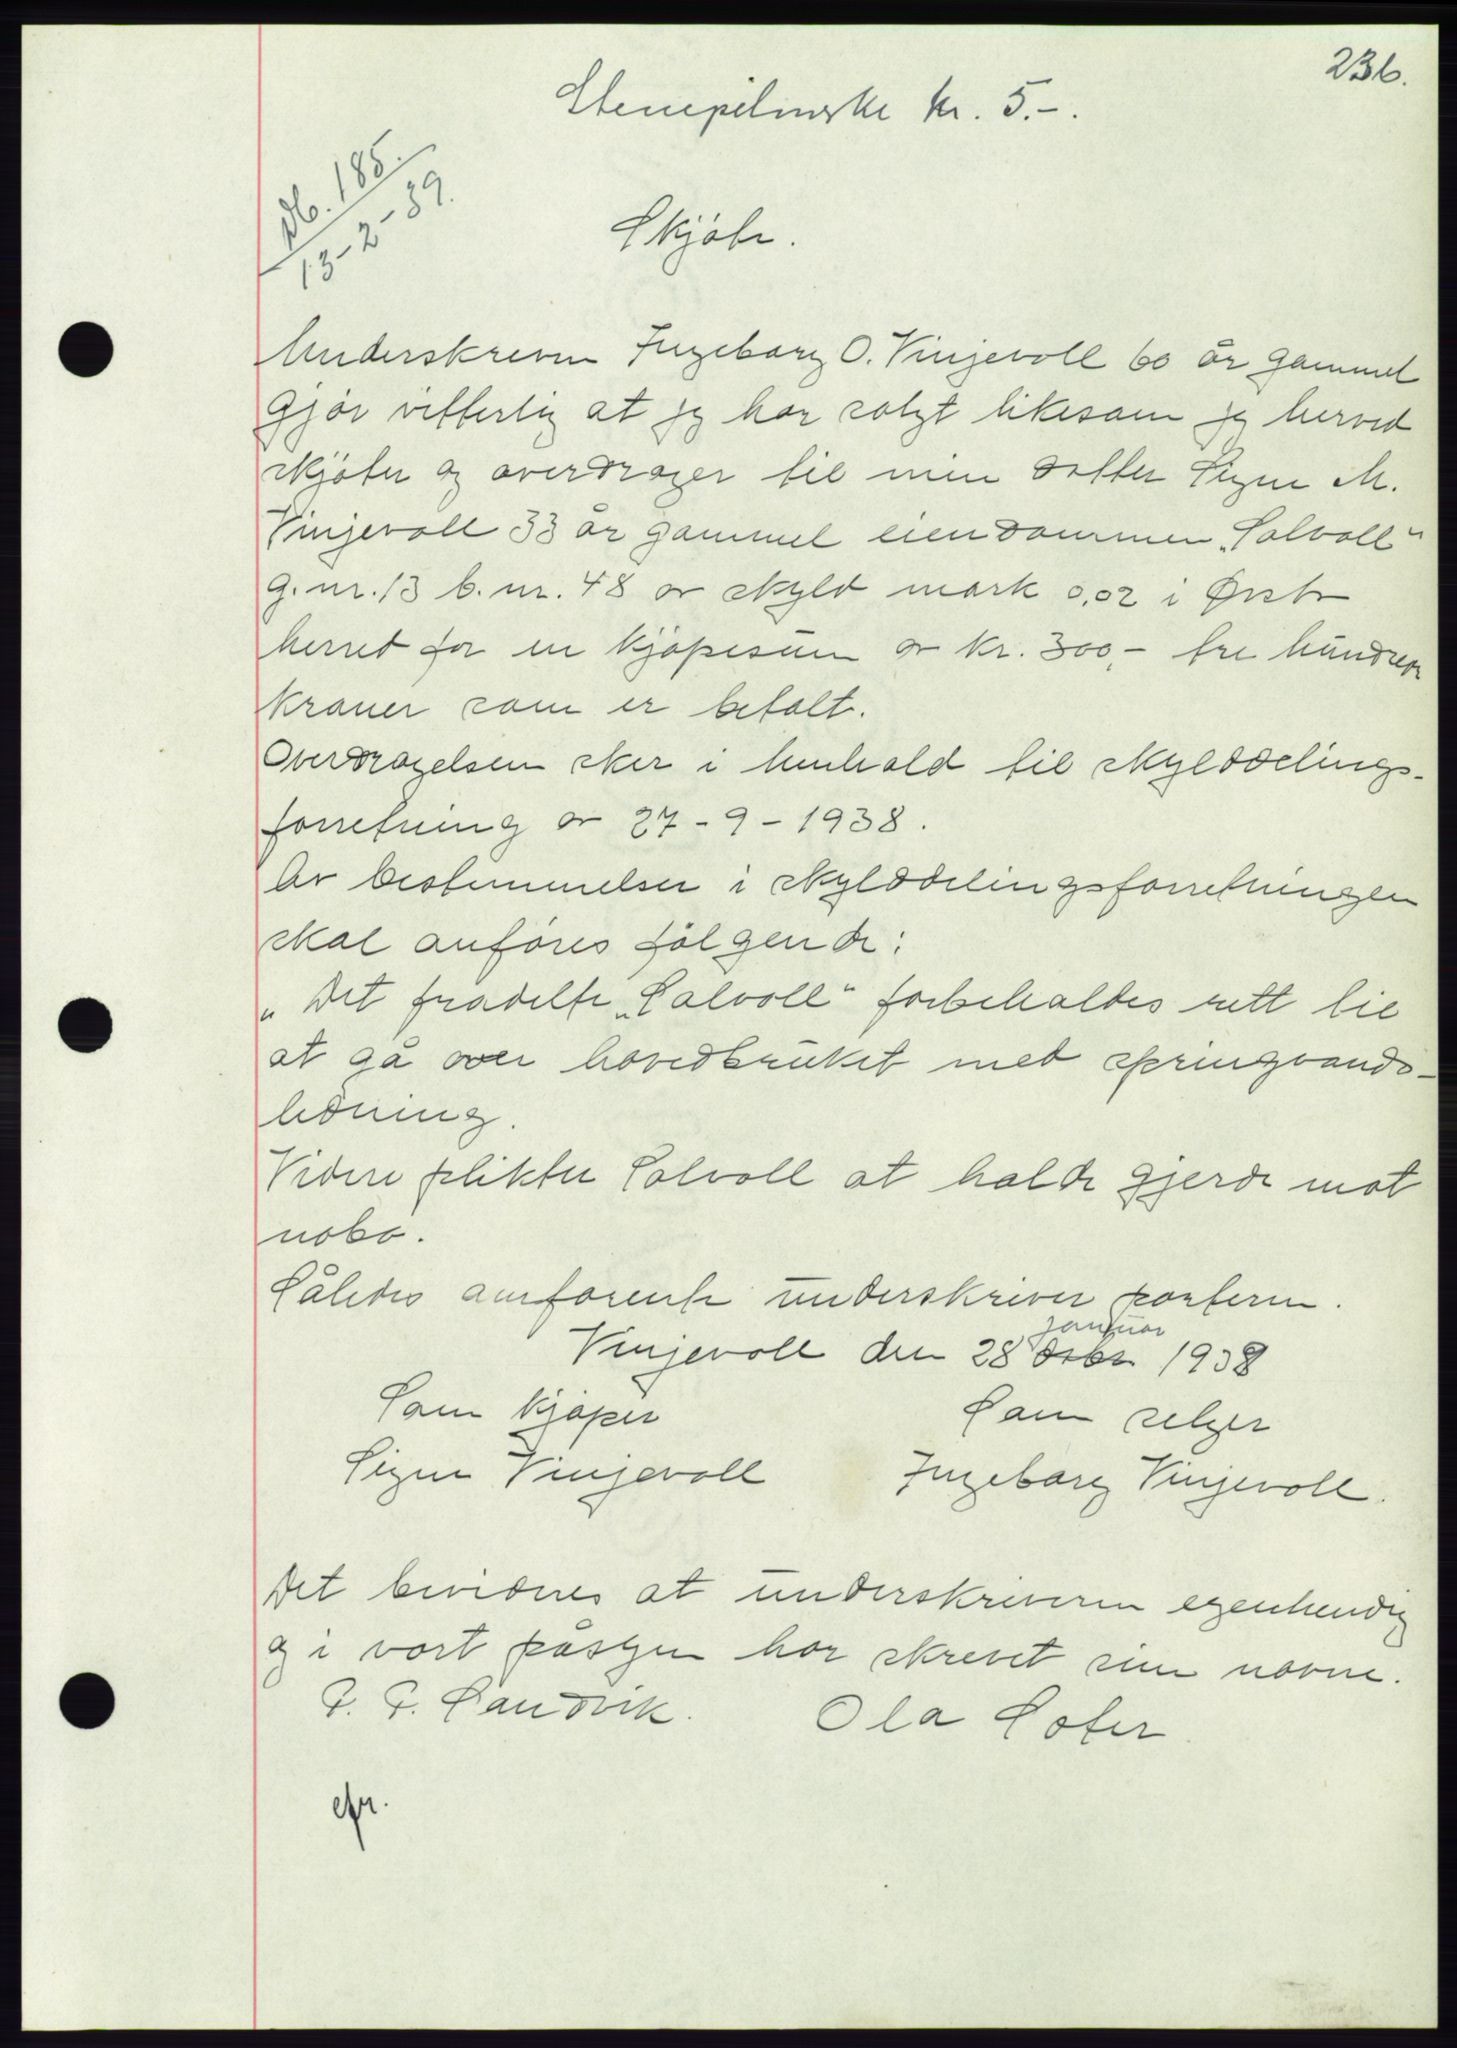 236.
Stempelmerke kr. 5.-.
Db. 185.
13-2-39.
Skjøte.
Underskreven Ingeborg O. Vinjevoll 60 år gammel
gjør vitterlig at jeg har solgt likesom jeg herved
skjøter og overdrager til min datter Signe M.
Vinjevoll 33 år gammel eiendommen "Solvoll"
g.nr. 13 b.nr. 48 av skyld mark 0,02 i Ørsta
herred for en kjøpesum av kr. 300,- tre hundrede
kroner som er betalt.
Overdragelsen sker i henhold til skylddelings-
forretning av 27-9-1938.
Av bestemmelser i skylddelingsforretningen
skal anføres følgende:
"Det fradelte "Solvoll" forbeholdes rett til
at gå over hovedbruket med springvands-
ledning.
Videre plikter Solvoll at holde gjerde mot
nabo.
Således omforente underskriver partene.
januar
Vinjevoll den 28 1939
Som kjøper Som selger
Signe Vinjevoll Ingeborg Vinjevoll.
Det bevidnes at underskriveren egenhendig
og i vort påsyn har skrevet sine navne.
P. P. Sandvik. Ola Sæter